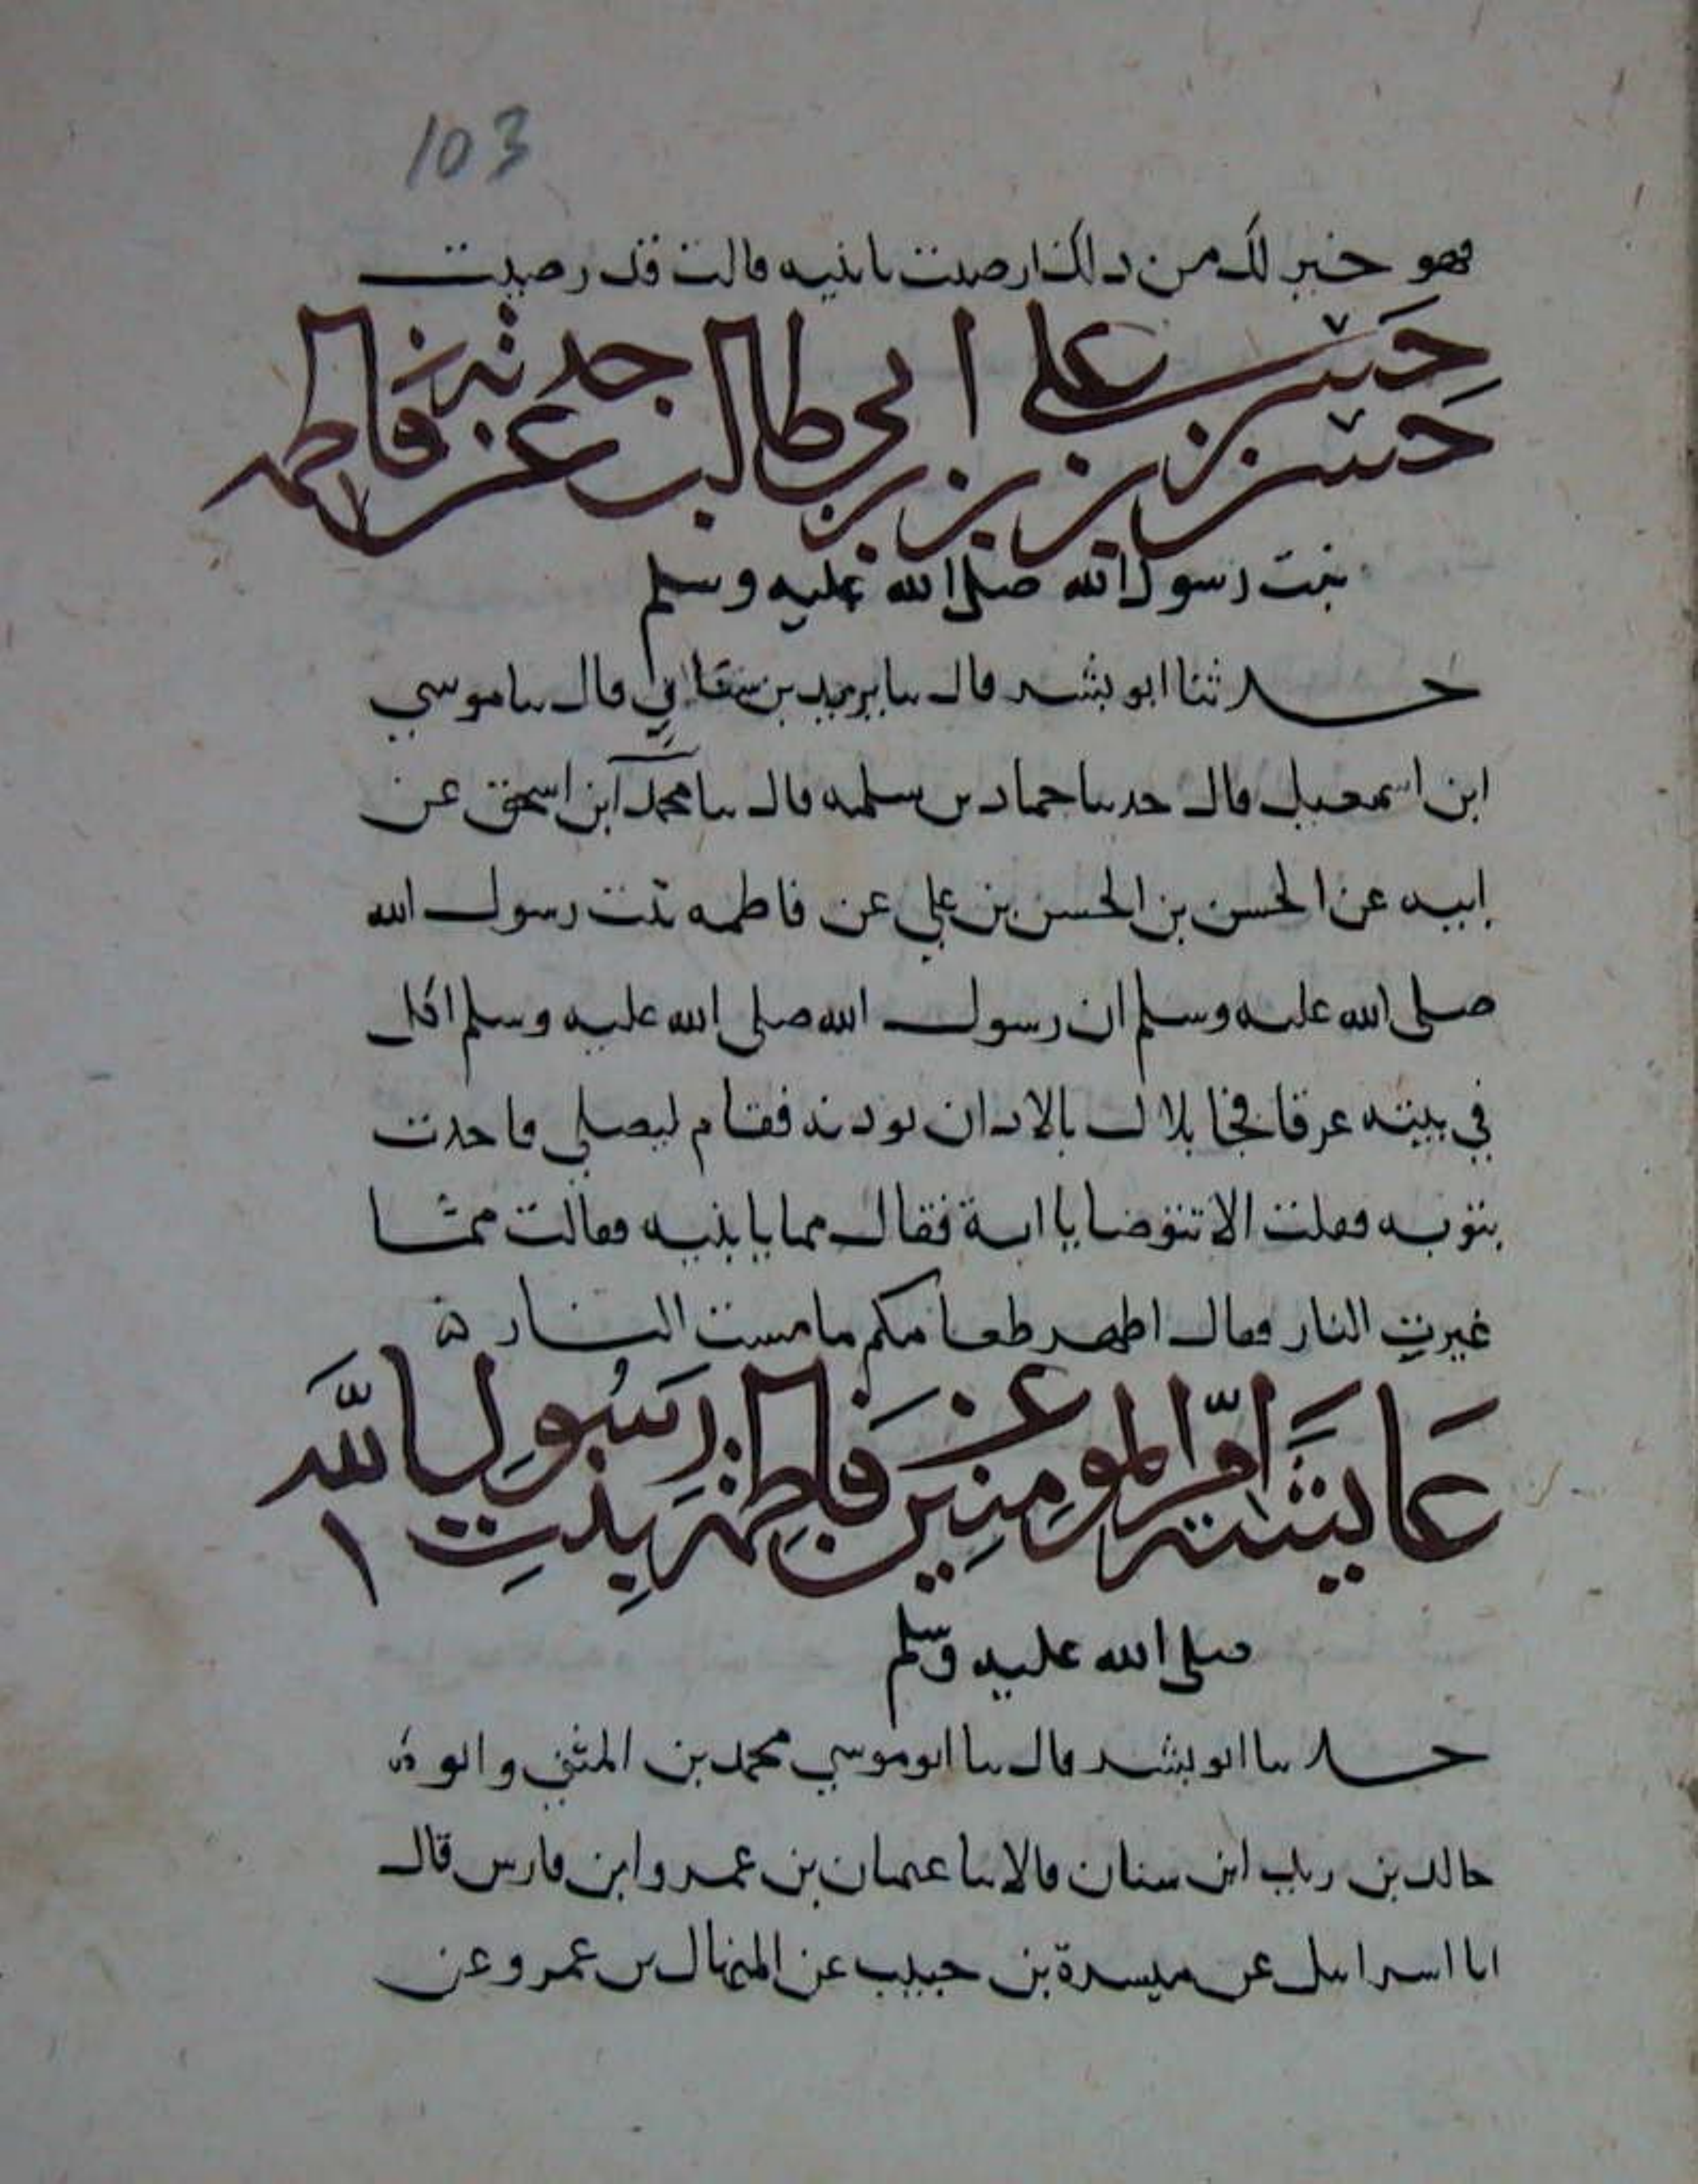 103
فهو خير لك من ذلك ارضيت يا بنيه قالت قد رضيت
حسن بن حسن بن علي بن ابي طالب عن جدته فاطمه
بنت رسول الله صلى الله عليه وسلم
حدثنا ابو بشر قال سا يزيد بن سنان قال سا موسي
ابن اسمعيل قال حدسا حماد بن سلمه قال سا محمد ابن اسحق عن
ابيه عن الحسن بن الحسن بن علي عن فاطمه بنت رسول الله
صلى الله عليه وسلم ان رسول الله صلى الله عليه وسلم اكل
في بيته عرقا فجا بلال بالاذان يوذنه فقام ليصلي فاخذت
بثوبه فقلت الا تتوضا يا ابة فقال مما يا بنيه فقالت مما
غيرت النار فقال اطهر طعامكم ما مست النار
عايشة ام المومنين عن فاطمة بنت رسول الله
١
صلى الله عليه وسلم
حد سا ابو بشر قال سا ابو موسي محمد بن المثني وابو
خالد بن سنان قالا سا عثمان بن عمر وابن فارس قال
ابا اسرايل عن ميسرة بن حبيب عن المنهال بن عمرو عن